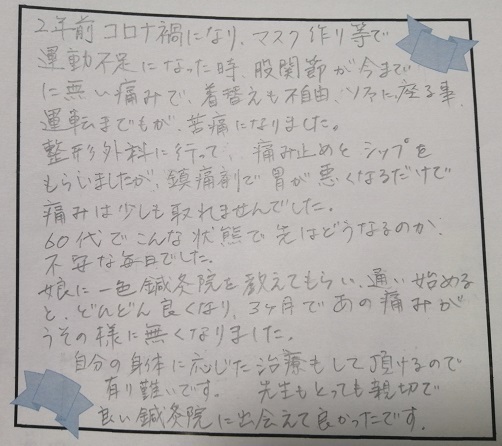 2年前コロナ禍になり、マスク作り等で
運動不足になった時、股関節が今まで
に無い痛みで、着替えも不自由、ソファに座る事、
運転までもが、苦痛になりました。
整形外科に行って、痛み止めとシップを
もらいましたが、鎮痛剤で胃が悪くなるだけで
痛みは少しも取れませんでした。
60代でこんな状態で先はどうなるのか、
不安な毎日でした。
娘に一色鍼灸院を教えてもらい、通い始める
と、どんどん良くなり、3ヶ月であの痛みが
うその様に無くなりました。
自分の身体に応じた治療もして頂けるので
有り難いです。 先生もとっても親切で
良い鍼灸院に出会えて良かったです。